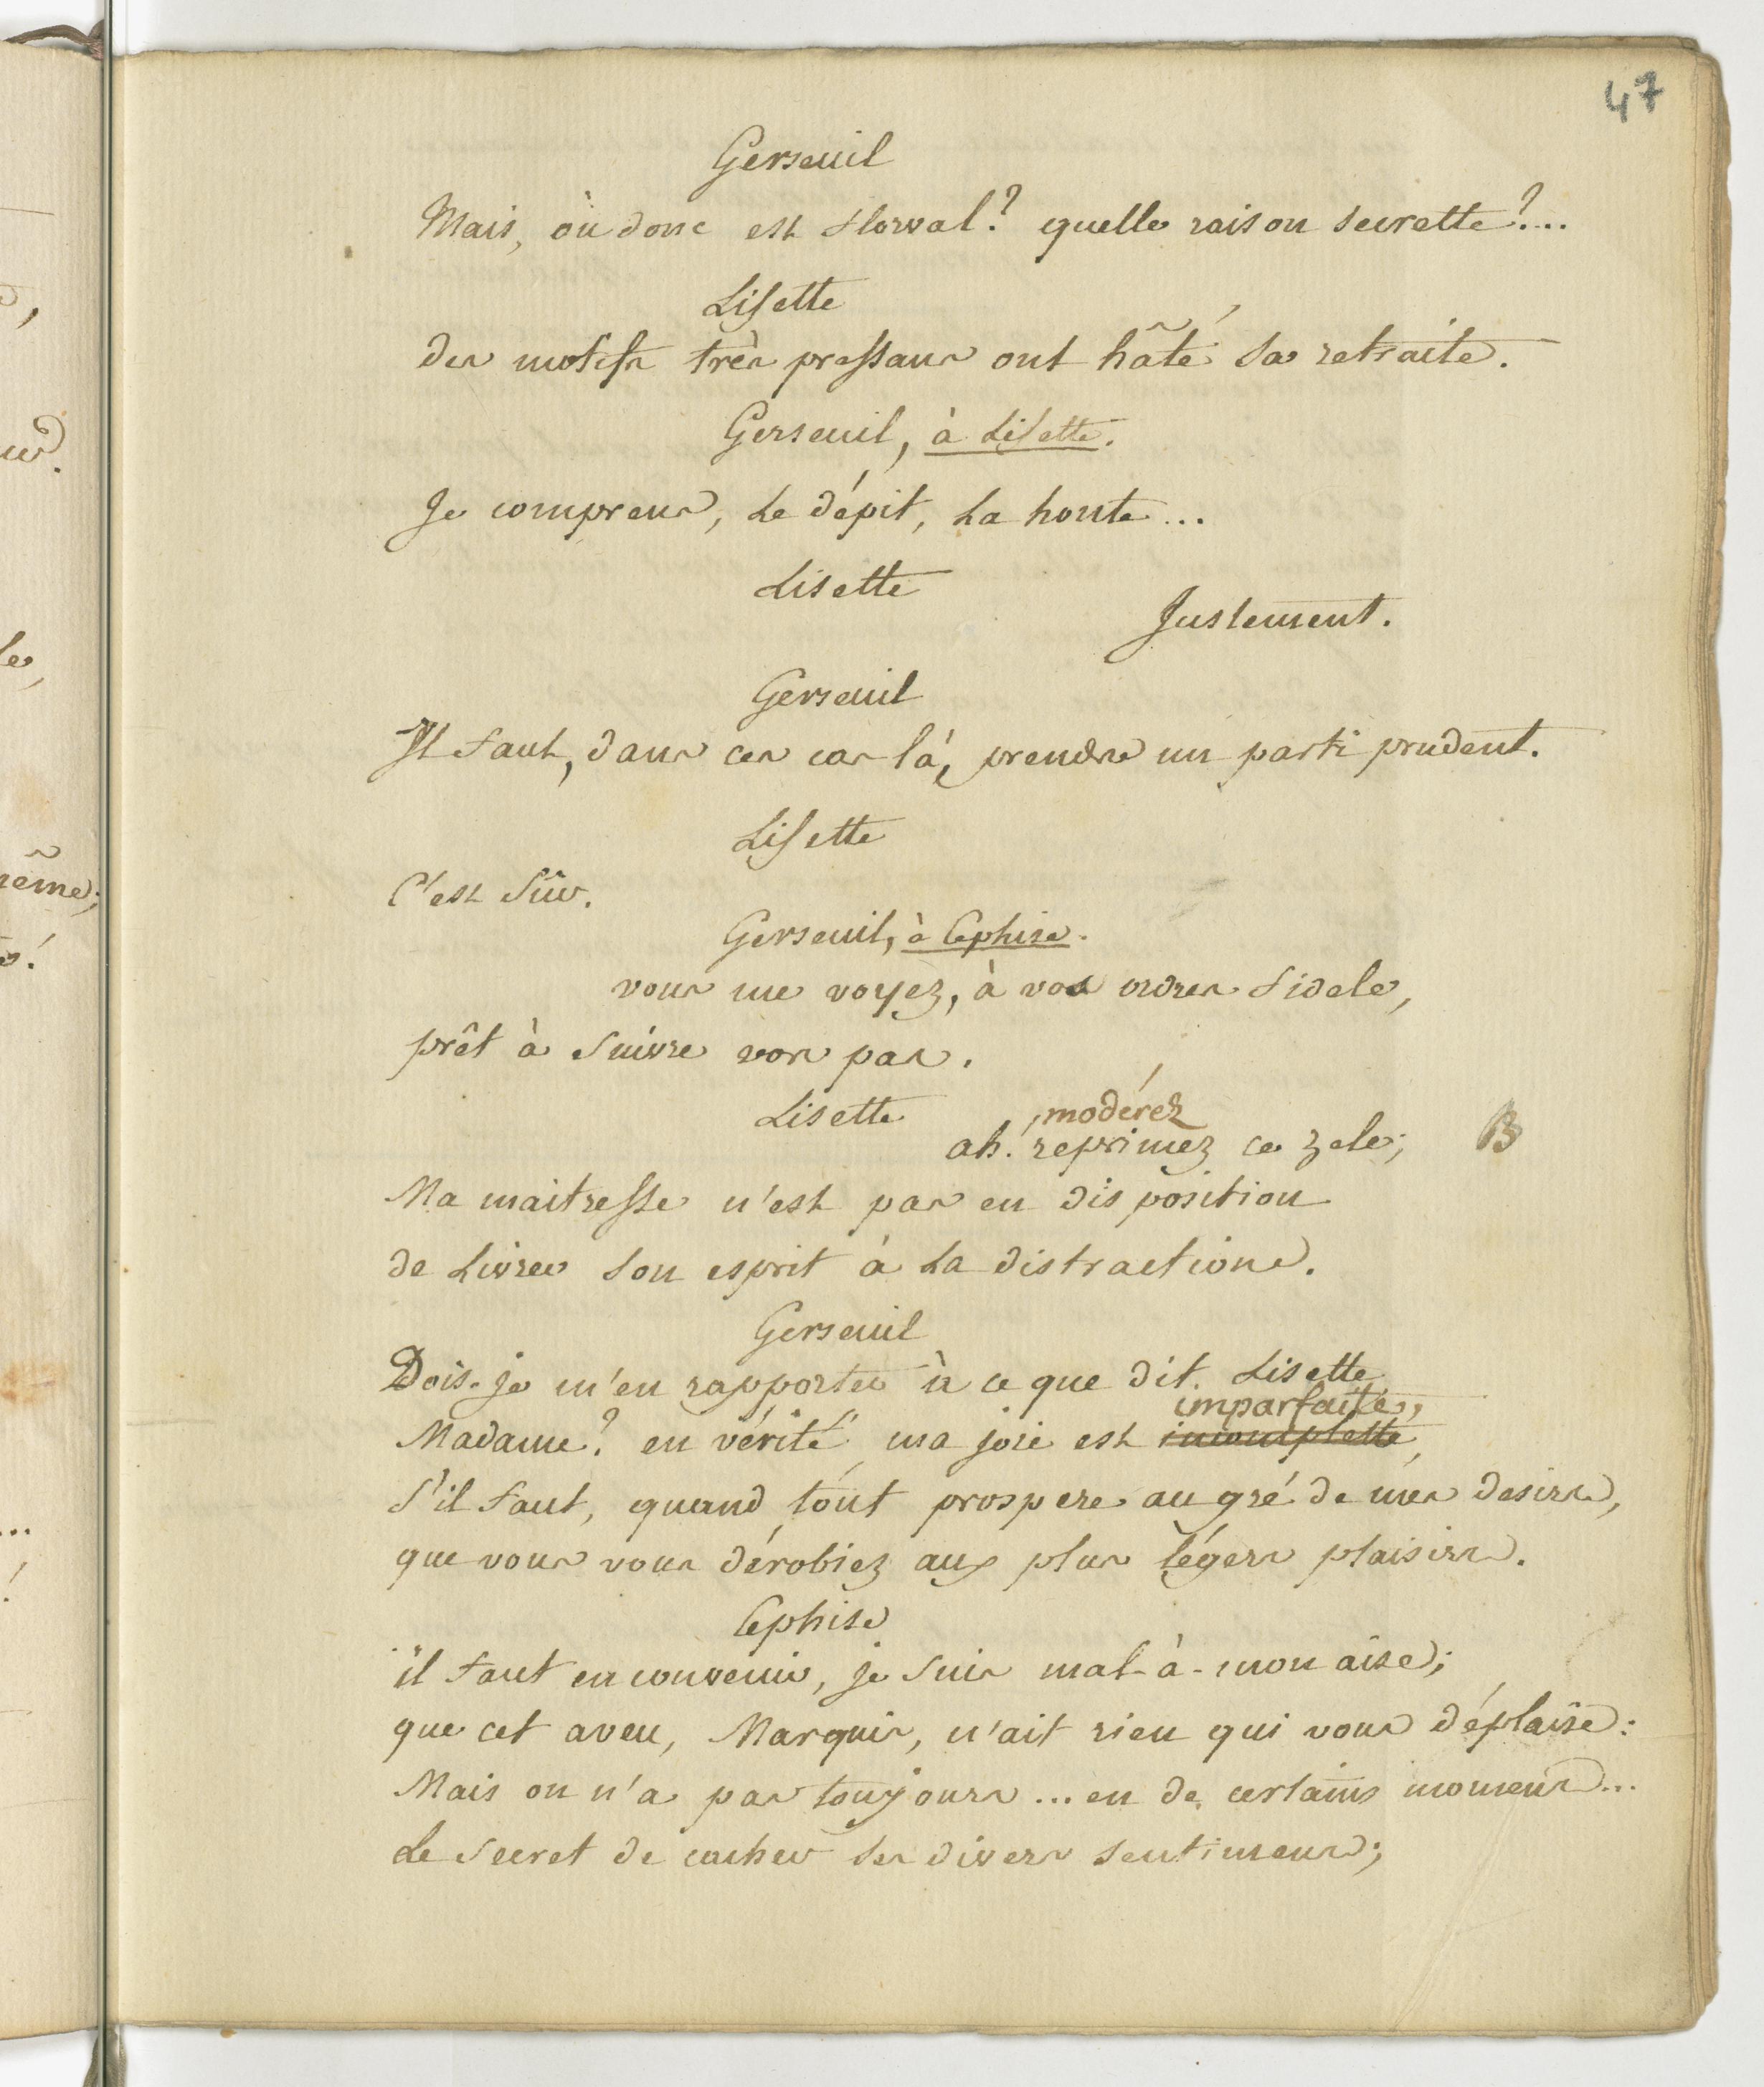 47
Gerseuil
Mais, où donc est Florval? quelle raison secrette?...
Lisette
des motifs très pressans ont hâté sa retraite.
Gerseuil, à Lisette.
Je comprens, le dépit, la honte...
Lisette
Justement.
Gerseuil
Il faut, dans ces cas là, prendre un parti prudent.
Lisette
C'est sûr.
Gerseuil, à Cephise.
vous me voyez, à vos ordres fidele,
prêt à suivre vos pas.
Lisette
modérez
ah! reprimez ce zele;
B
Ma maitresse n'est pas en disposition
de livrer son esprit à la distraction.
Gerseuil
Dois-je m'en rapporter à ce que dit Lisette
imparfaite,
Madame? en vérité, ma joie est incomplette,
s'il faut, quand tout prospere au gré de mes desirs,
que vous vous dérobiez aux plus légers plaisirs.
Cephise
il faut en convenir, je suis mal-à-mon aise;
que cet aveu, Marquis, n'ait rien qui vous déplaise:
Mais on n'a pas toujours... en de certains momens...
le secret de cacher ses divers sentimens;